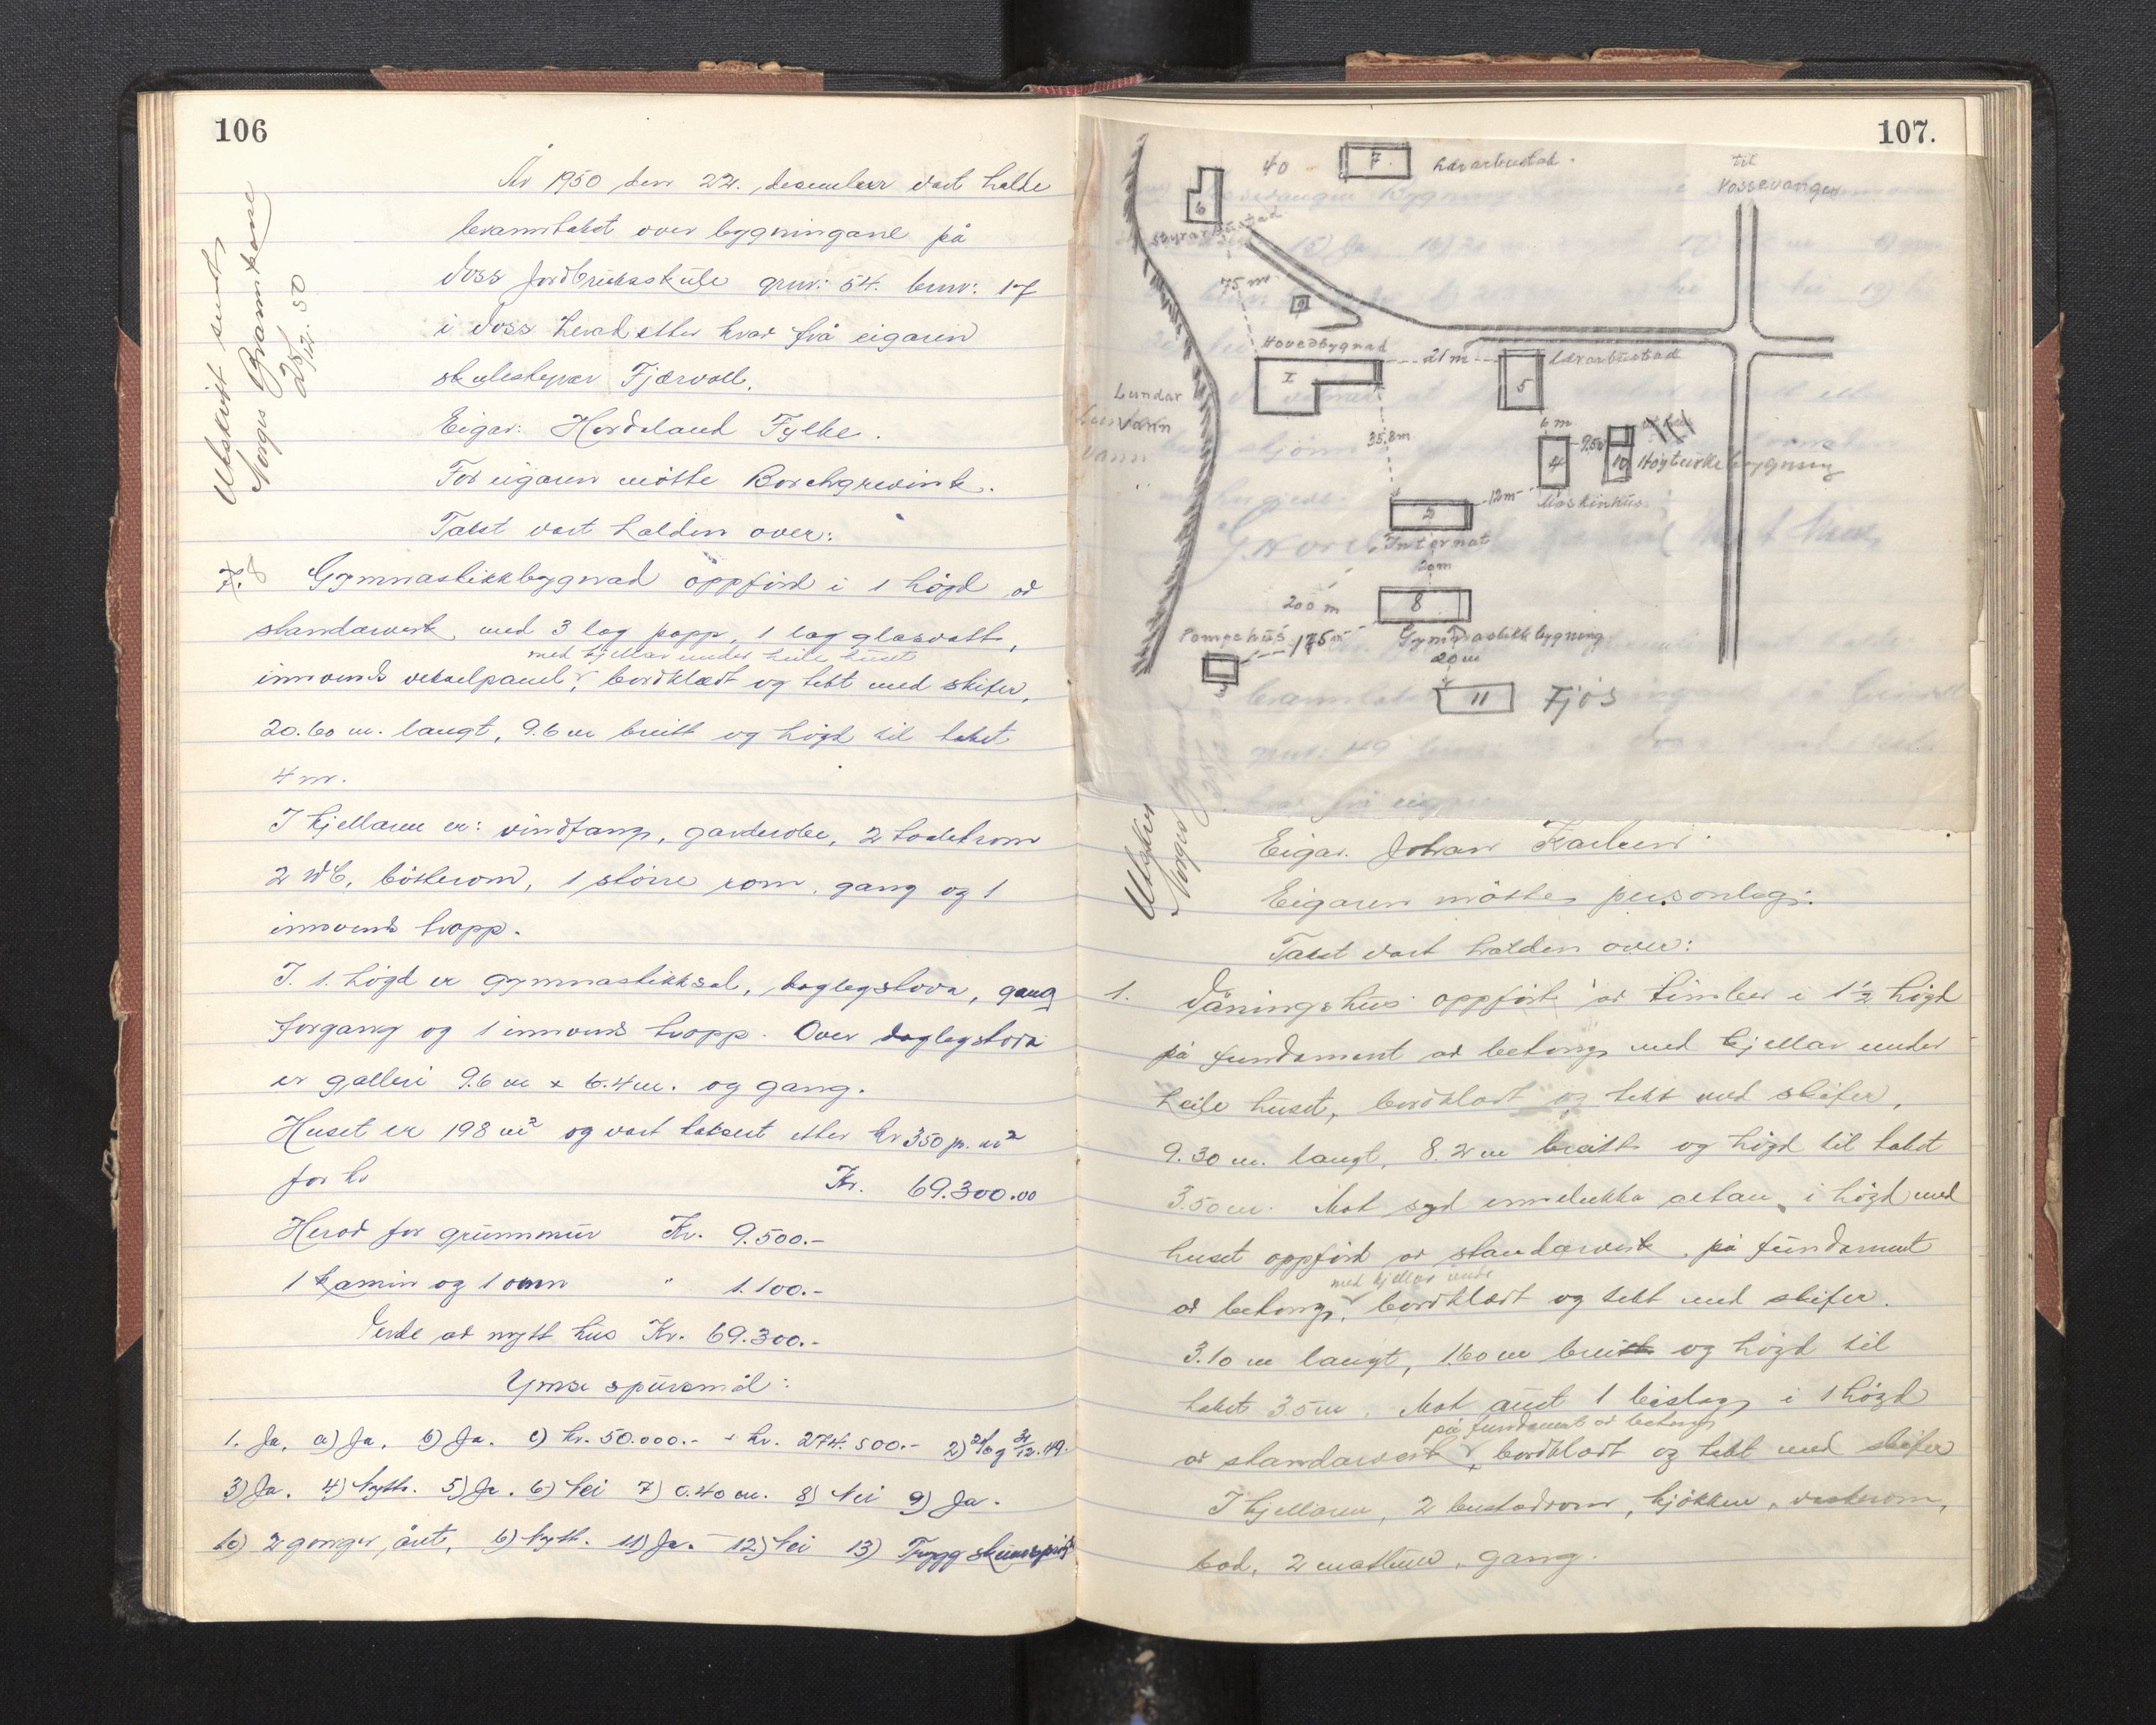 106
År 1950 den 22. desember vart halde
branntakst over bygningane på
Voss Jordbruksskule gnr: 54. bnr: 17
i Voss herad etter krav frå eigaren
skulestyrar Fjærvoll.
Eigar: Hordaland Fylke.
For eigaren møtte Borchgrevink.
Takst vart halden over:
Utskrift sendt
Norges Brannkasse
28/12.50
7. 8 Gymnastikkbygnad oppförd i 1 högd av
standarverk, med 3 lag papp, 1 lag glasvatt,
med kjellar under heile huset
innvends vekselpanel, bordklædt og tekt med skifer,
20.60 m. langt, 9.6 m breitt og högd til taket
4 m.
I kjellaren er: vindfang, garderobe, 2 toalettrom
2 WC, bötterom, 1 större rom, gang og 1
innvends tropp.
I 1. högd er gymnastikksal, daglegstova, gang
forgang og 1 innvends tropp. Over daglegstova
er galleri 9.6 m x 6.4 m. og gang.
Huset er 198 m² og vart taksert etter kr 350 p. m²
for kr Kr. 69.300.00
Herav for grunnmur Kr. 9.500.-
1 kamin og 1 omn " 1.100.-
Verde av nytt hus Kr. 69.300.-
Ymse spursmål:
1. Ja, a) Ja, b) Ja. c) Kr. 50.000.- + kr. 274.500.- 2) og 31/12.49.
3) Ja. 4) Nytt. 5) Ja. 6) Nei 7) 0.40 m. 8) Nei 9) Ja.
10) 2 gonger året, b) Nytt. 11) Ja. 12) Nei 13) Trygg
107.
40 7. Lærarbustad.
til
Vossevangen
6
Styrarbustad
75 m
9
Hovedbygnad
I
21 m
5
Lærarbustad
Lundar
vann
vann
35.8m
6 m
4
9.50
10 Høyturkebygning
Maskinhus
12m
2
Internat
20m
200 m
8
Gymnastikkbygning
Pompehus 175 m
3
20 m
11 Fjøs
Utskrift
Norges
Eigar. Johan
Eigaren møtte personleg.
Takst vart halden over:
1. Våningshus oppfört av timber i 1 1/2 högd
på fundament av betong med kjellar under
heile huset, bordklædt og tekt med skifer,
9.30 m. langt, 8.2 m breitt og högd til taket
3.50 m. Mot syd innelukka altan, i högd med
huset oppförd av standarverk på fundament
med kjellar under
av betong, bordklædt og tekt med skifer.
3.10 m langt, 1.60 m breitt og högd til
taket 3.5 m. Mot aust 1 bislag i 1 högd
på fundament av betong
av standarverk, bordklædt og tekt med skifer
I kjellaren, 2 bustadrom, kjökken, vaskerom,
bod, 2 matbur, gang.